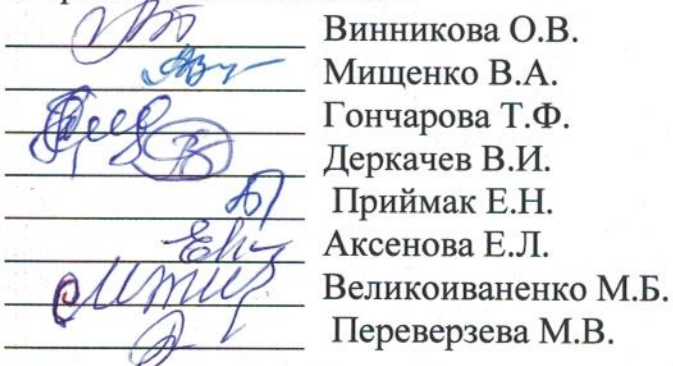 Винникова О.В.
Мищенко В.А.
Гончарова Т.Ф.
Деркачев В.И.
Приймак Е.Н.
Аксенова Е.Л.
Великоиваненко М.Б.
Переверзева М.В.